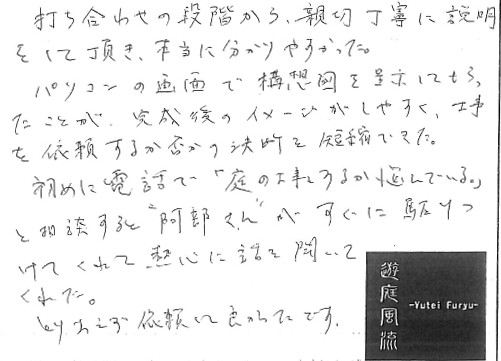 打ち合わせの段階から、親切丁寧に説明
をして頂き、本当に分かりやすかった。
パソコンの画面で構想図を呈示してもらっ
たことが、完成後のイメージがしやすく、工事
を依頼するか否かの決断を短縮できた。
初めに電話で"庭の工事をするか悩んでいる。"
と相談すると"阿部さん"がすぐに駆けつ
けてくれて熱心に話を聞いて
くれた。
とりあえず依頼して良かったです。
遊庭風流
-Yutei Furyu-